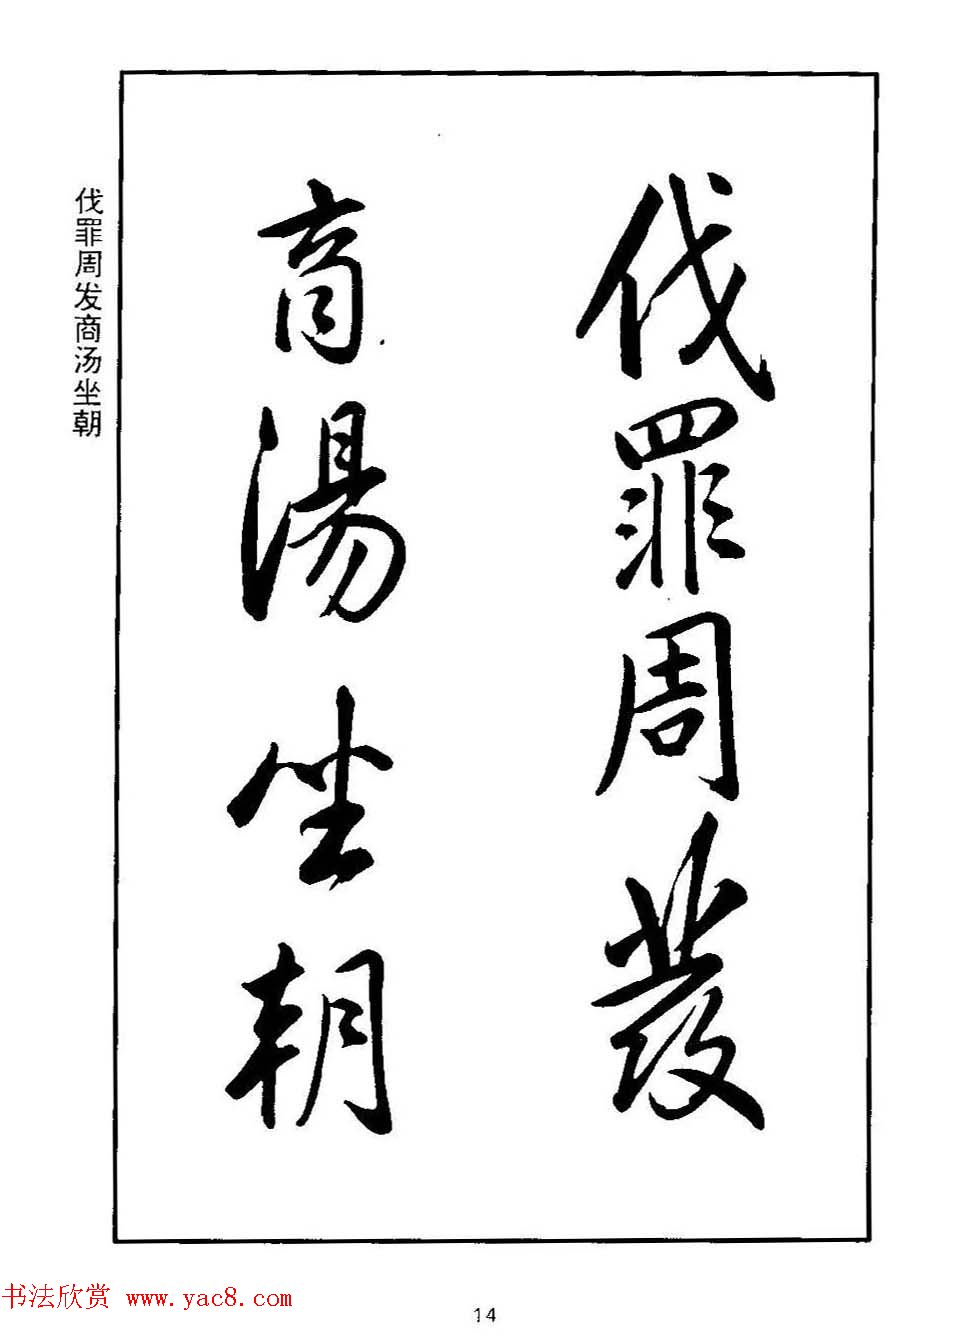 伐罪周發
商湯坐朝
伐罪周发商汤坐朝
书法欣赏 www.yac8.com
14